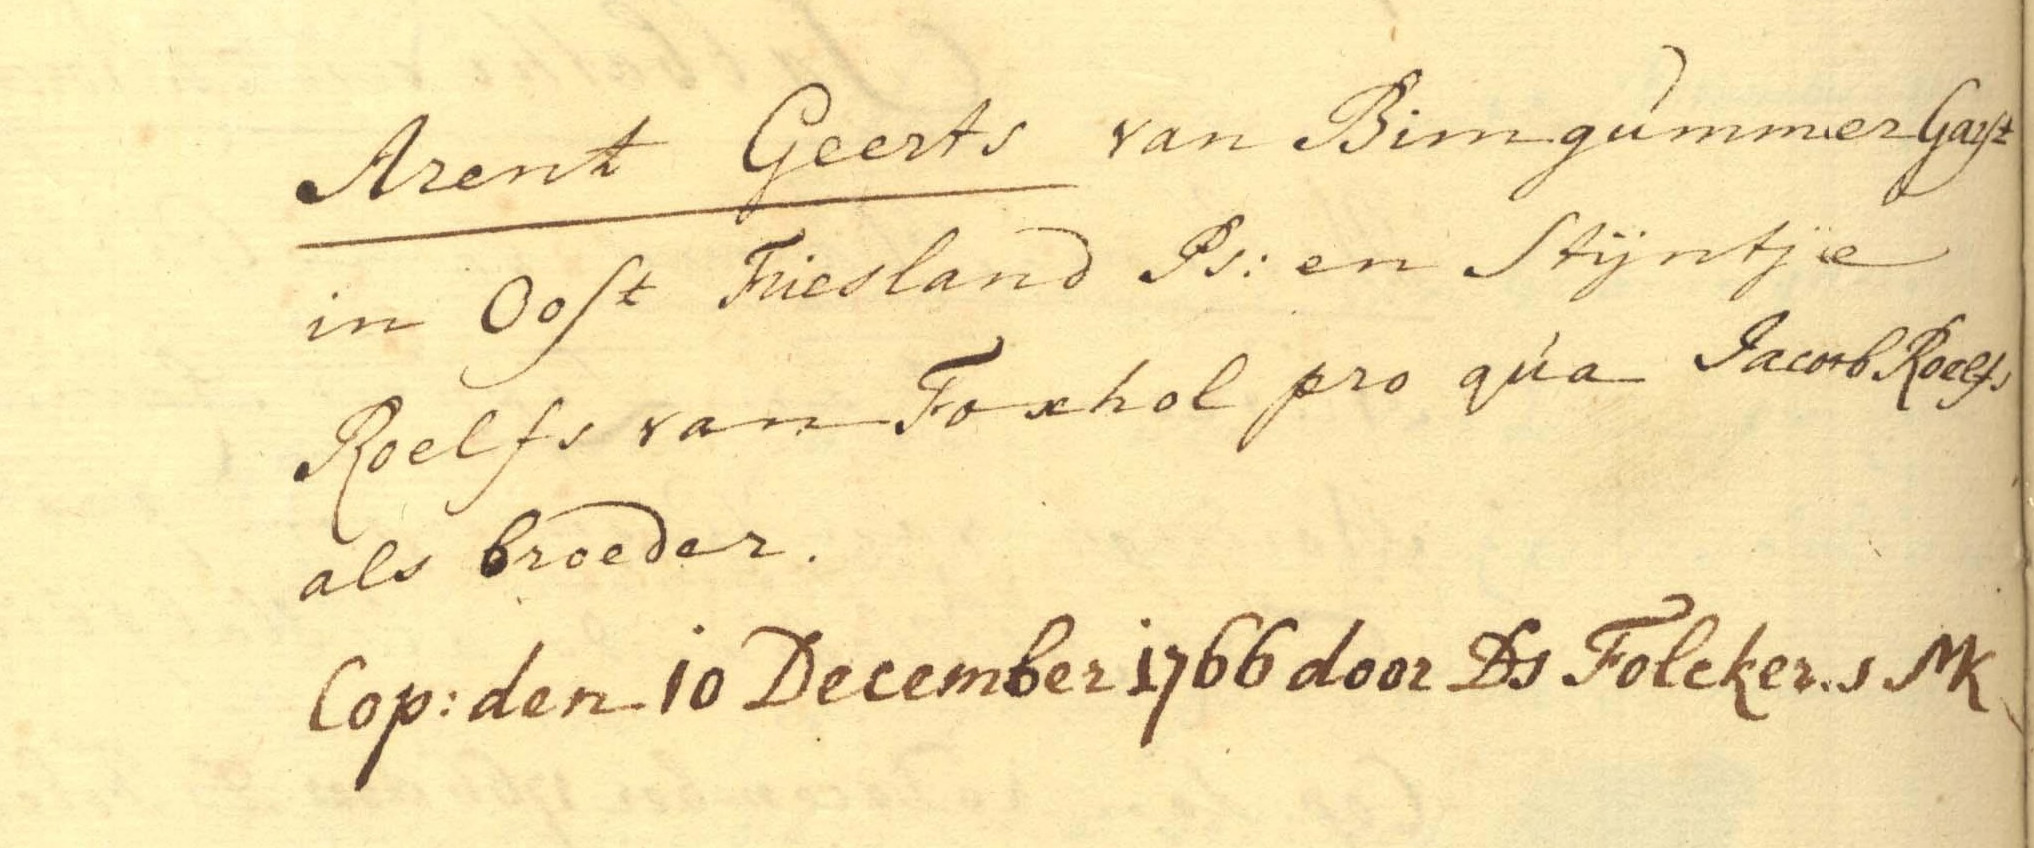 Arent Geerts van Bimgummer Gast
in Oost Friesland Ps: en Stijntje
Roelfs van Foxhol pro qua Jacob Roelfs
als broeder.
Cop: den 10 December 1766 door Ds Folckers MK